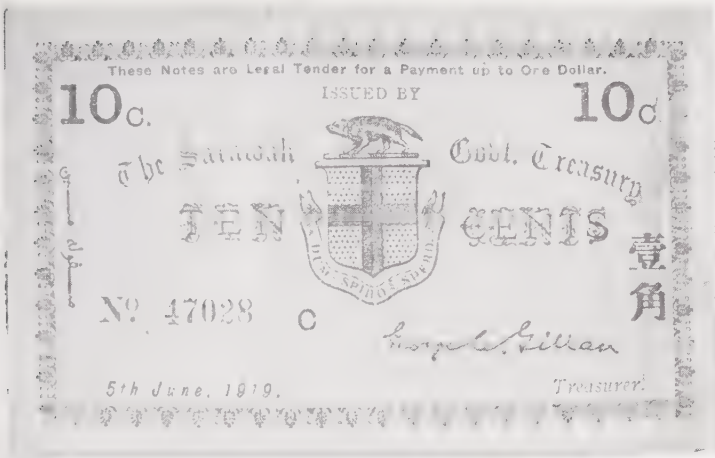 These Notes are Legal Tender for a Payment up to One Dollar.
ISSUED BY
10c. 10c
The Sarawak Govt. Treasury
TEN CENTS
DUM SPIRO SPERO
壹角
No. 47028 C
George C. Gillan
5th June, 1919. Treasurer.